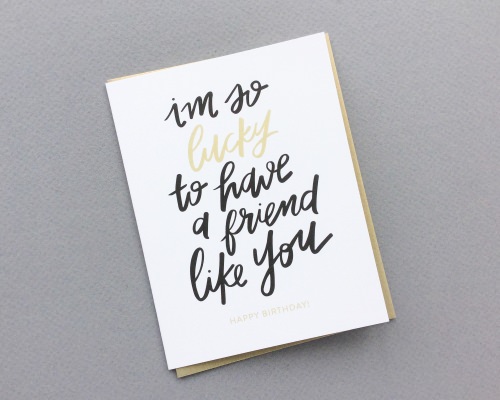 im so
lucky
to have
a friend
like you
HAPPY BIRTHDAY!